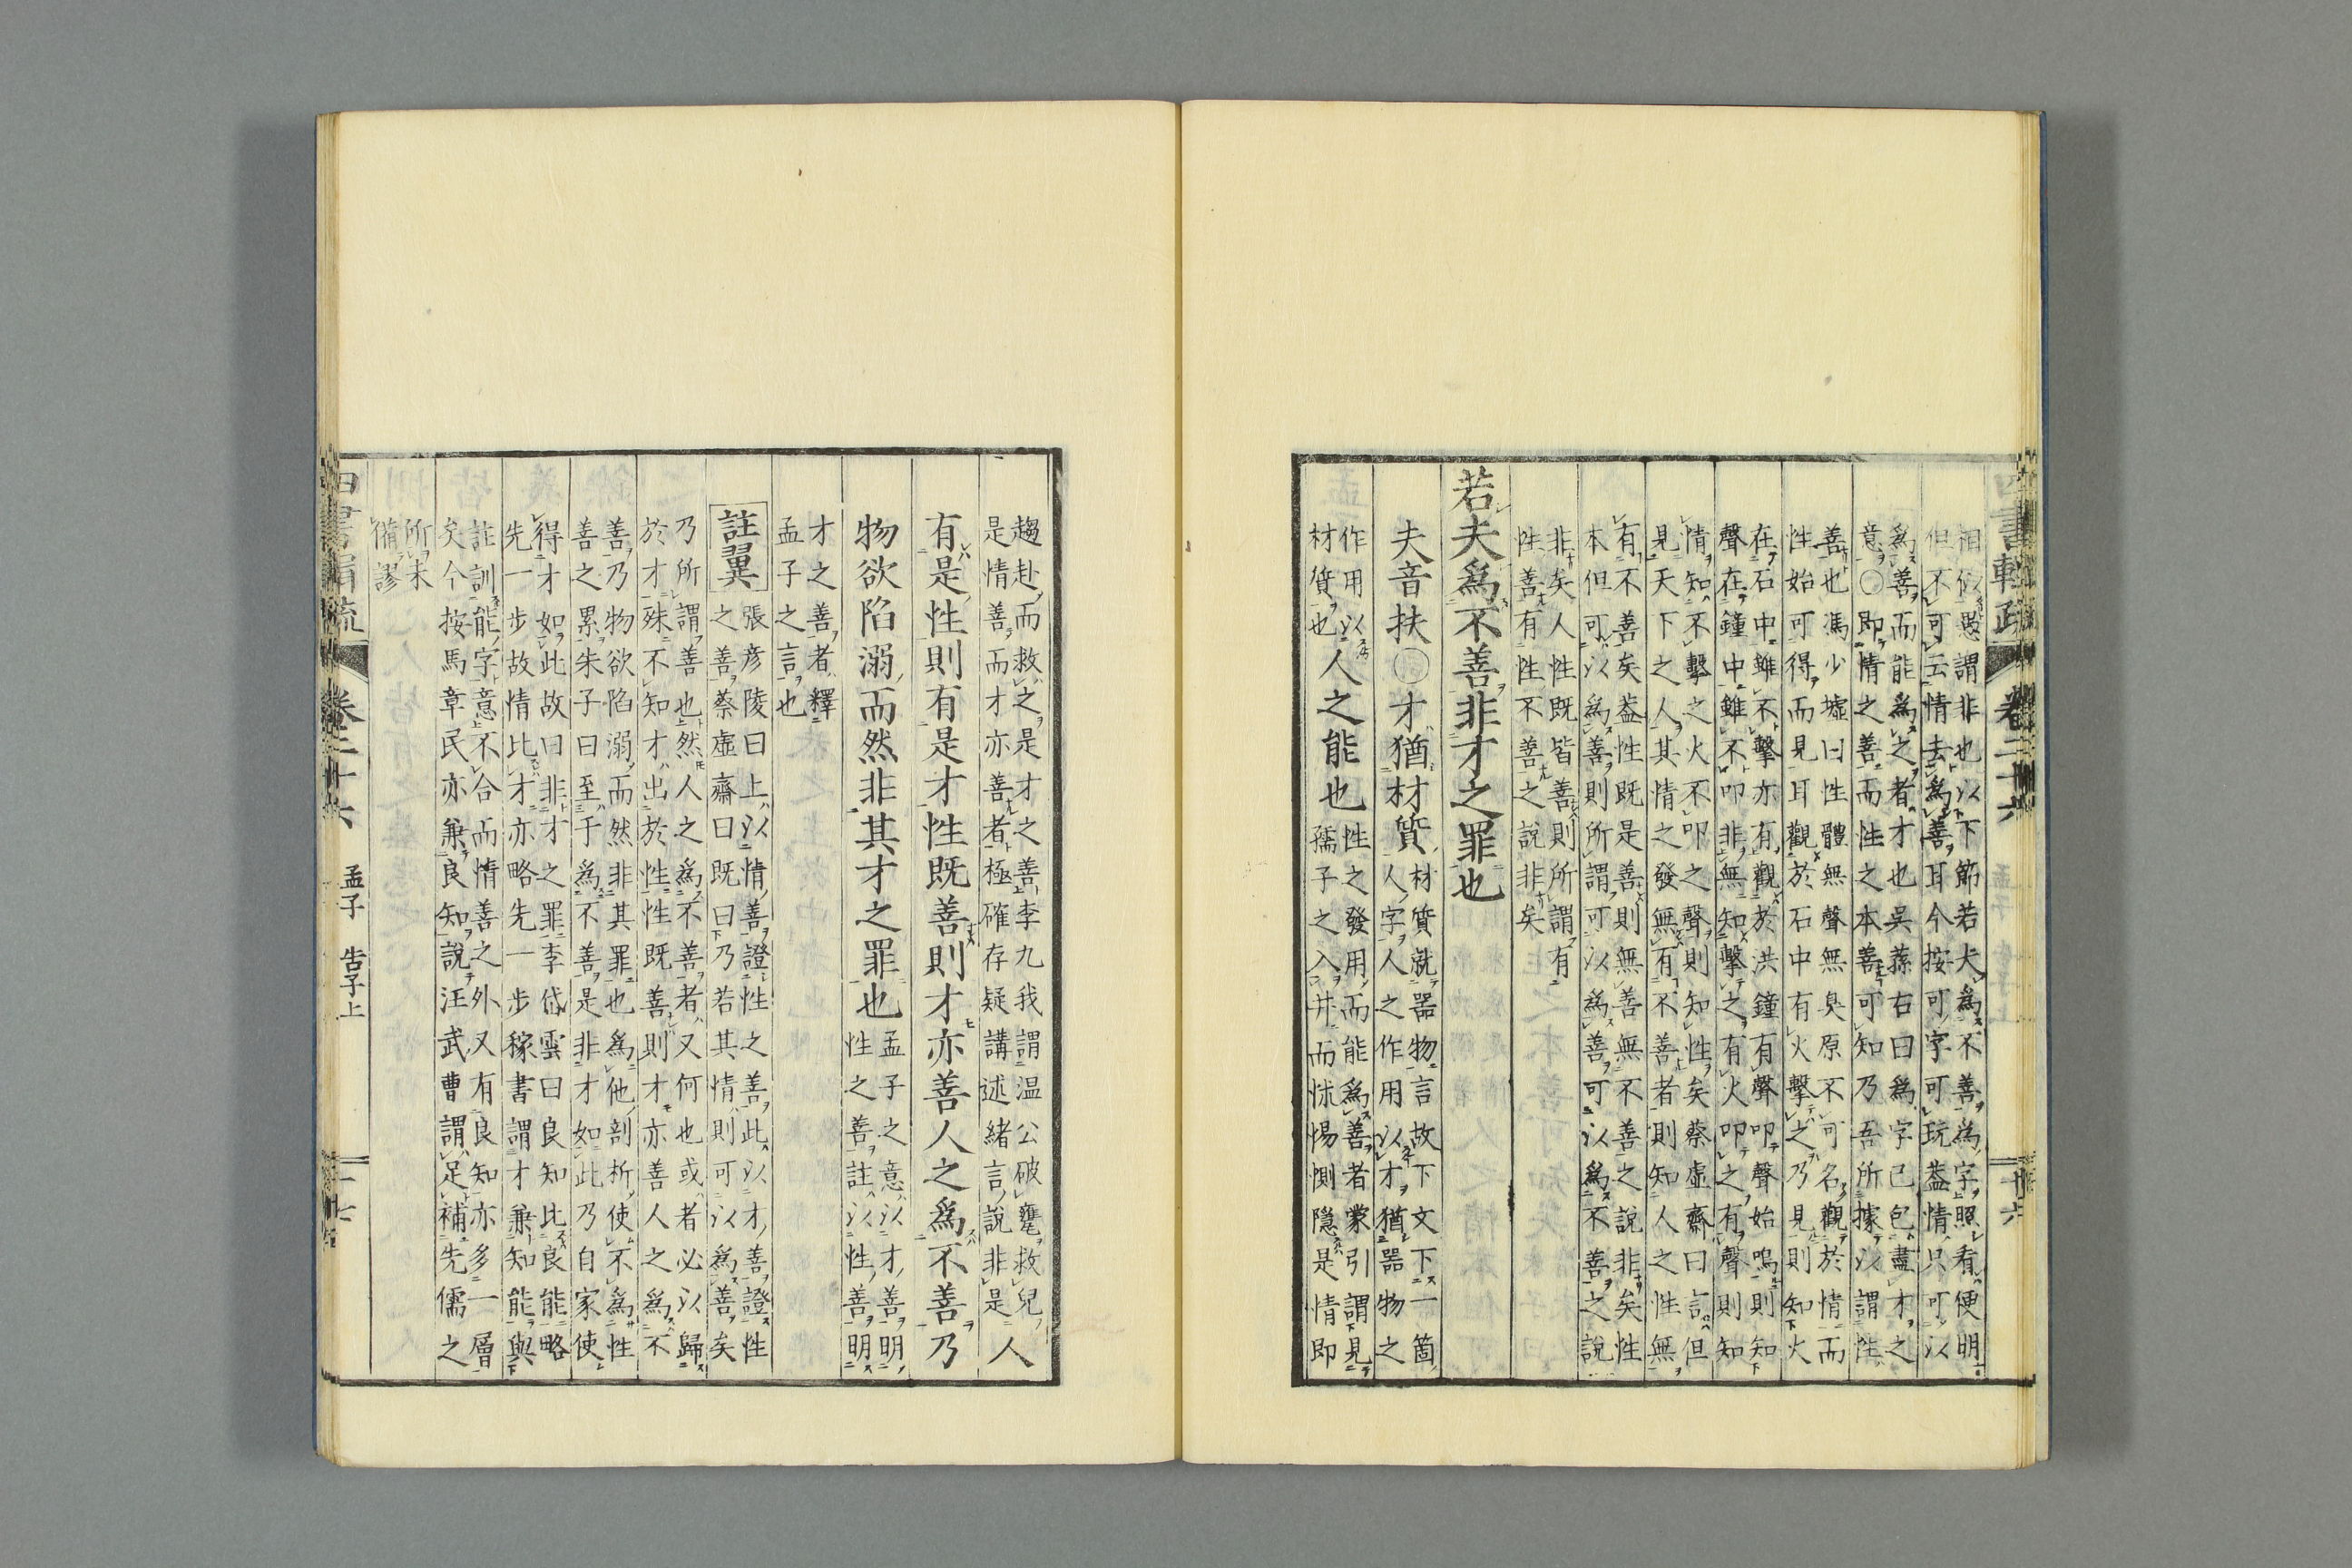 四書輯疏 卷二十六 十六
相似愚謂非也以下節若夫爲不善爲字照看便明
但不可云情去爲善耳今按可字可玩蓋情只可以
爲善而能爲之者才也吳蓀右曰爲字已包盡才之
意○即情之善而性之本善可知乃吾所據以謂性
善也馮少墟曰性體無聲無臭原不可名觀於情而
性始可得而見耳觀於石中有火擊之乃見則知火
在石中雖不擊亦有觀於洪鐘有聲叩聲始鳴則知
聲在鐘中雖不叩非無知擊之有火叩之有聲則知
情知不擊之火不叩之聲則知性矣蔡虛齋曰言但
見天下之人其情之發無有不善者則知人之性無
有不善矣蓋性既是善則無善無不善之說非矣性
本但可以爲善則所謂可以爲善可以爲不善之說
非矣人性既皆善則所謂有
性善有性不善之說非矣
若夫爲不善非才之罪也
夫音扶○才猶材質
材質就器物言故下文下一箇
人字人之作用以才猶器物之
作用以性之發用而能爲善者蒙引謂見
材質也人之能也孺子之入井而怵惕惻隱是情即
趨赴而救之是才之善李九我謂溫公破甕救兒
是情善而才亦善者極確存疑講述緒言說非是人
有是性則有是才性既善則才亦善人之爲不善乃
物欲陷溺而然非其才之罪也
孟子之意以才善明
性之善註以性善明
才之善者釋
孟子之言也
註翼
張彦陵曰上以情善證性之善此以才善證性
之善蔡虛齋曰既曰乃若其情則可以爲善矣
乃所謂善也然人之爲不善者又何也或者必以歸
於才殊不知才出於性性既善則才亦善人之爲不
善乃物欲陷溺而然非其罪也爲他剖析使不爲性
善之累朱子曰至于爲不善是非才如此乃自家使
得才如此故曰非才之罪李岱雲曰良知比良能略
先一步故情比才亦略先一步稼書謂才兼知能與
註訓能字意不合而情善之外又有良知亦多一層
矣今按馬章民亦兼良知說汪武曹謂足補先儒之
所未
備謬
卷二十六 孟子 告子上